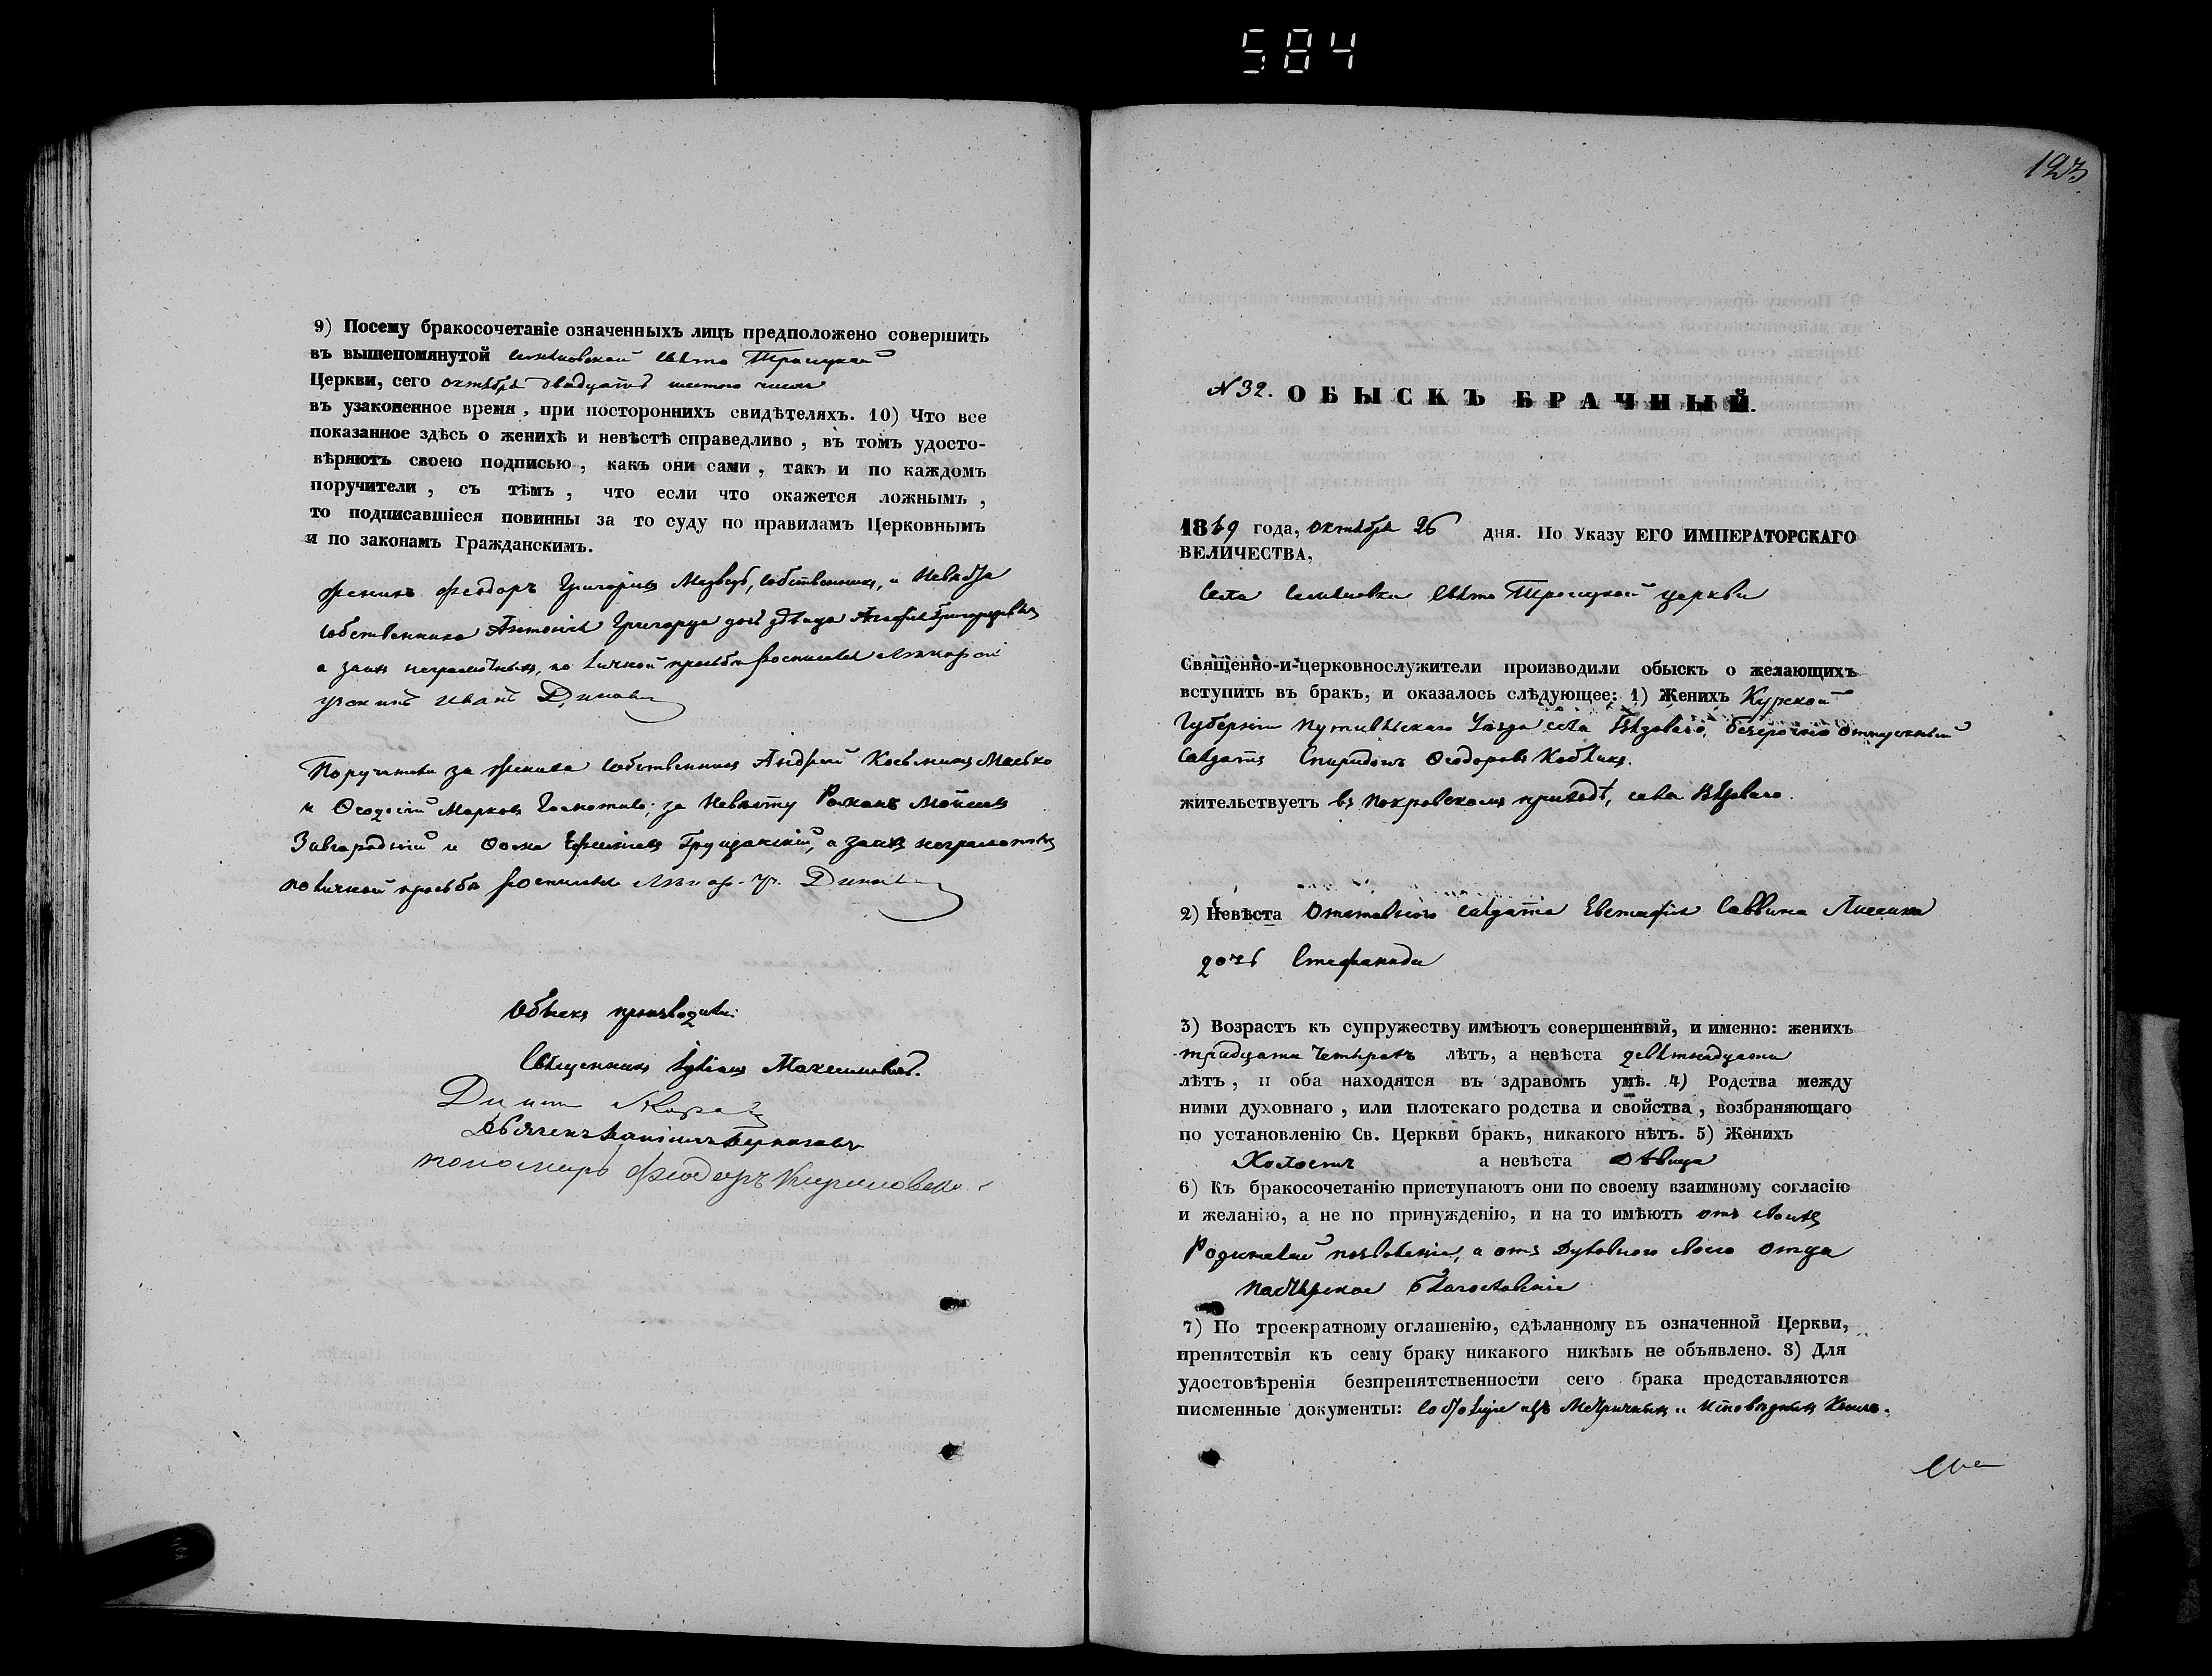 584
9) Посему бракосочетаніе означенныхъ лицъ предположено совершить
въ вышепомянутой свято Троицкой
Церкви, сего октября двадцать шестого числа
въ узаконенное время, при постороннихъ свидѣтеляхъ. 10) Что все
показанное здѣсь о женихѣ и невѣстѣ справедливо, въ томъ удосто-
вѣряютъ своею подписью, какъ они сами, такъ и по каждомъ
поручители, съ тѣмъ, что если что окажется ложнымъ,
то подписавшіеся повинны за то суду по правиламъ Церковнымъ
и по законамъ Гражданскимъ.
Женихъ Феодоръ Григоріевъ Медведь, собственникъ, и Невѣста
собственника Антонія дочь дѣвица
а за ихъ неграмотныхъ, по личной просьбѣ росписался
Иванъ
Поручители за жениха собственники Андрей Косьминъ Масько
и Ѳеодосій Марковъ за Невѣсту Романъ Мойсеевъ
Завгородній и Ѳома а за ихъ неграмотныхъ
по личной просьбѣ росписался
Обыскъ производили:
Священникъ Іуліанъ Максимовичъ.
пономарь Феодоръ
123
№ 32. ОБЫСКЪ БРАЧНЫЙ.
1869 года, октября 26 дня. По Указу ЕГО ИМПЕРАТОРСКАГО
ВЕЛИЧЕСТВА,
Села Семеновки Свято Троицкой церкви
Священно-и-церковнослужители производили обыскъ о желающихъ
вступить въ бракъ, и оказалось слѣдующее: 1) Женихъ Курской
Губерніи Путивльскаго Уѣзда села безсрочно отпускной
Солдатъ Спиридонъ Ѳеодоровъ
жительствуетъ въ Покровскомъ приходѣ, села
2) Невѣста Отставного солдата Евстафія Саввина
дочь Стефанида
3) Возрастъ къ супружеству имѣютъ совершенный, и именно: женихъ
тридцати четырехъ лѣтъ, а невѣста девятнадцати
лѣтъ, и оба находятся въ здравомъ умѣ. 4) Родства между
ними духовнаго, или плотскаго родства и свойства, возбраняющаго
по установленію Св. Церкви бракъ, никакого нѣтъ. 5) Женихъ
Холостъ а невѣста дѣвица
6) Къ бракосочетанію приступаютъ они по своему взаимному согласію
и желанію, а не по принужденію, и на то имѣютъ отъ своихъ
Родителей позволеніе, а отъ Духовного своего отца
пастырское благословеніе
7) По троекратному оглашенію, сдѣланному въ означенной Церкви,
препятствія къ сему браку никакого никѣмъ не объявлено. 8) Для
удостовѣренія безпрепятственности сего брака представляются
писменные документы: изъ Метричныхъ и исповѣдныхъ